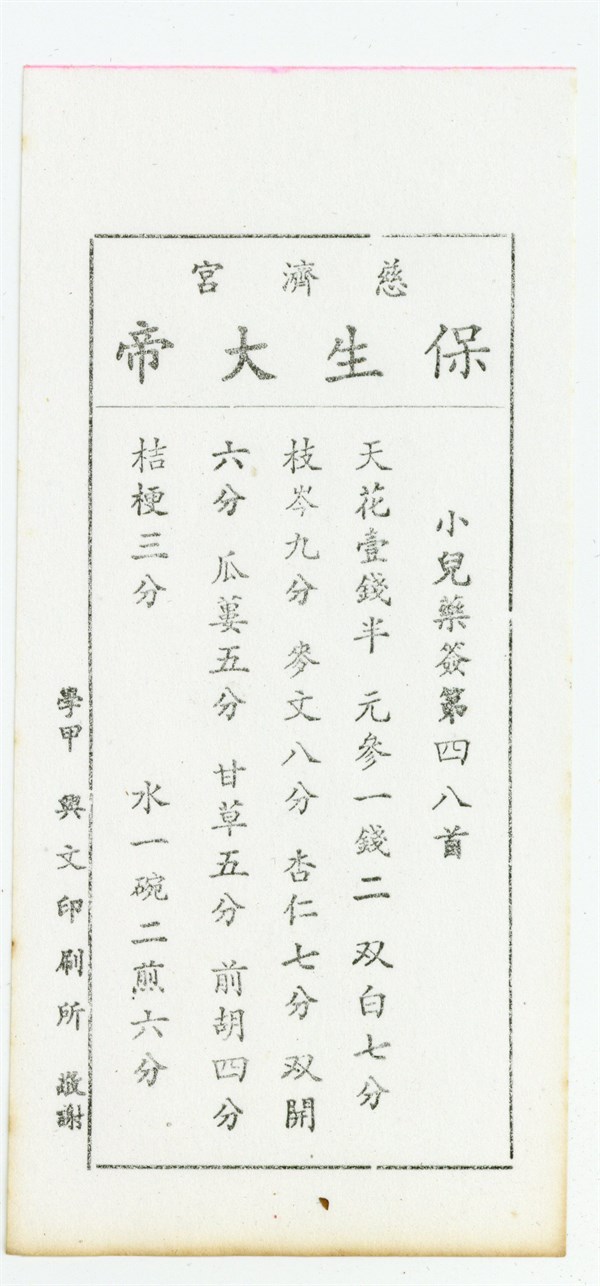 慈濟宮
保生大帝
小兒藥簽第四八首
天花壹錢半 元參一錢二 双白七分
枝岑九分 麥文八分 杏仁七分 双開
六分 瓜蔞五分 甘草五分 前胡四分
桔梗三分 水一碗二煎六分
學甲 興文印刷所 敬謝